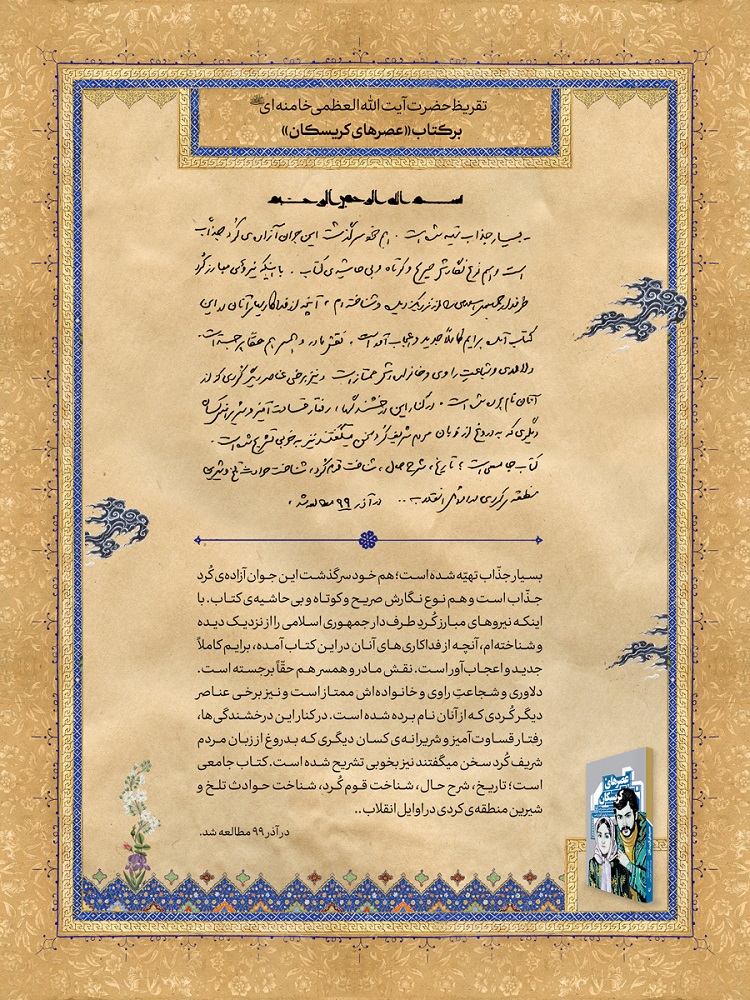 تقریظ حضرت آیت الله العظمی خامنه ای
بر کتاب «عصرهای کریسکان»
بسم الله الرحمن الرحیم
- بسیار جذاب تهیه شده است. هم خود سرگذشت این جوان آزاده‌ی کُرد جذّاب
است و هم نوع نگارش صریح و کوتاه و بی حاشیه‌ی کتاب. با اینکه نیروهای مبارز کُرد
طرفدار جمهوری اسلامی را از نزدیک دیده و شناخته ام، آنچه از فداکاریهای آنان در این
کتاب آمده برایم کاملاً جدید و اعجاب آور است. نقش مادر و همسر هم حقّاً برجسته است.
دلاوری و شجاعتِ راوی و خانواده‌اش ممتاز است و نیز برخی عناصر دیگر کُردی که از
آنان نام برده شده است. در کنار این درخشندگیها، رفتار قساوت آمیز و شریرانه‌ی کسان
دیگری که به دروغ از زبان مردم شریف کُرد سخن میگفتند نیز به خوبی تشریح شده است.
کتاب جامعی است؛ تاریخ، شرح حال، شناخت قوم کُرد، شناخت حوادث تلخ و شیرین
منطقه‌ی کردی در اوایل انقلاب .. در آذر ۹۹ مطالعه شد.
بسیار جذّاب تهیّه شده است؛ هم خود سرگذشت این جوان آزاده‌ی کُرد
جذّاب است و هم نوع نگارش صریح و کوتاه و بی حاشیه‌ی کتاب. با
اینکه نیروهای مبارز کُردِ طرف‌دار جمهوری اسلامی را از نزدیک دیده
و شناخته‌ام، آنچه از فداکاری‌های آنان در این کتاب آمده، برایم کاملاً
جدید و اعجاب‌آور است. نقش مادر و همسر هم حقّاً برجسته است.
دلاوری و شجاعتِ راوی و خانواده‌اش ممتاز است و نیز برخی عناصر
دیگر کُردی که از آنان نام برده شده است. در کنار این درخشندگی‌ها،
رفتار قساوت‌آمیز و شریرانه‌ی کسان دیگری که بدروغ از زبان مردم
شریف کُرد سخن میگفتند نیز بخوبی تشریح شده است. کتاب جامعی
است؛ تاریخ، شرح حال، شناخت قوم کُرد، شناخت حوادث تلخ و
شیرین منطقه‌ی کردی در اوایل انقلاب..
در آذر ۹۹ مطالعه شد.
عصرهای
کریسکان